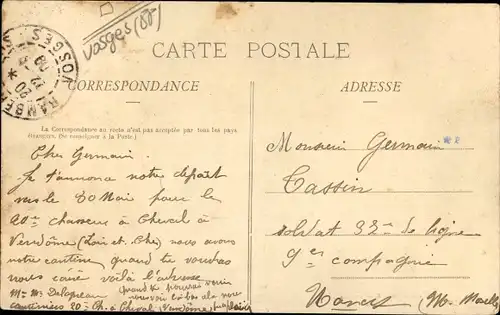 Vosges (88)
CARTE POSTALE
CORRESPONDANCE
ADRESSE
VOSGES
RAMBER
La Correspondance au recto n'est pas acceptée par tous les pays
étrangers. (Se renseigner à la Poste)
Cher Germain.
Je t'annonce notre départ
vers le 30 Mai pour le
20e chasseurs à Cheval à
Vendôme (Loir et Cher) nous avons
notre cantine quand tu voudras
nous écrire voilà l'adresse
Mme Delapreau
cantiniers 20e Ch. à Cheval (Vendôme)
Monsieur Germain
Tassin
soldat 32e de ligne
9e compagnie